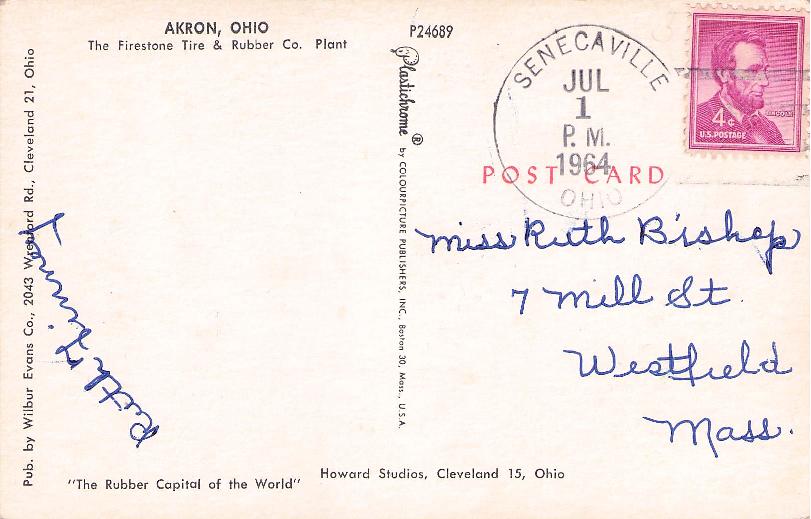 AKRON, OHIO
The Firestone Tire & Rubber Co. Plant
Pub. by Wilbur Evans Co., 2043 Wrenford Rd., Cleveland 21, Ohio
"The Rubber Capital of the World"
P24689
Plastichrome ® by COLOURPICTURE PUBLISHERS, INC., Boston 30, Mass., U.S.A.
Howard Studios, Cleveland 15, Ohio
SENECAVILLE
JUL
1
P. M.
1964
OHIO
LINCOLN
4¢
U.S. POSTAGE
POST CARD
Miss Ruth Bishop
7 Mill St.
Westfield
Mass.
Ruth